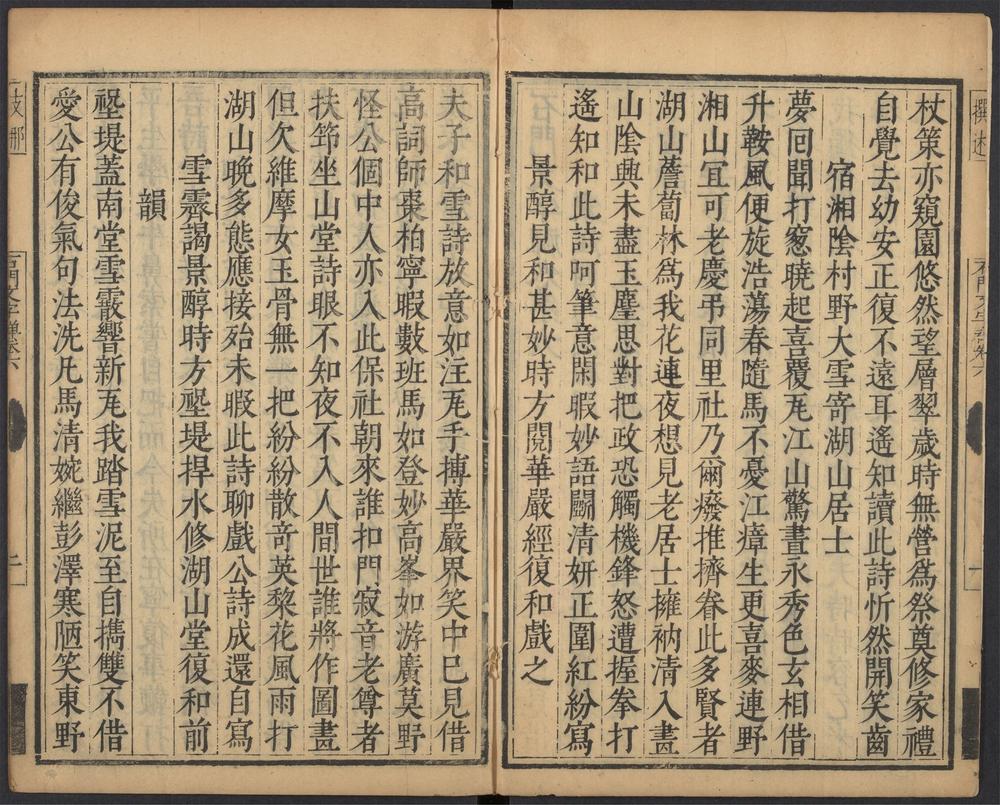 杖策亦窺園悠然望層翠歲時無營爲祭奠修家禮
自覺去幼安正復不遠耳遙知讀此詩忻然開笑齒
宿湘陰村野大雪寄湖山居士
夢回聞打窻曉起喜覆瓦江山驚晝永秀色玄相借
升鞍風便旋浩蕩春隨馬不憂江瘴生更喜麥連野
湘山宜可老慶弔同里社乃爾癈推擠眷此多賢者
湖山薝蔔林爲我花連夜想見老居士擁衲清入畫
山陰興未盡玉麈思對把政恐觸機鋒怒遭握拳打
遙知和此詩呵筆意閑暇妙語鬭清妍正圍紅紛寫
景醇見和甚妙時方閱華嚴經復和戲之
夫子和雪詩放意如注瓦手摶華嚴界笑中已見借
高詞師棗柏寧暇數班馬如登妙高峯如游廣莫野
怪公個中人亦入此保社朝來誰扣門寂音老尊者
扶筇坐山堂詩眼不知夜不入人間世誰將作圖畫
但欠維摩女玉骨無一把紛紛散竒英黎花風雨打
湖山晚多態應接殆未暇此詩聊戲公詩成還自寫
雪霽謁景醇時方壂堤捍水修湖山堂復和前
韻
壂堤蓋南堂雪霰響新瓦我踏雪泥至自攜雙不借
愛公有俊氣句法洗凡馬清婉繼彭澤寒陋笑東野
撰述
支那
石門文字禪卷六
二